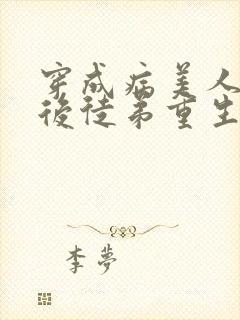 穿成病美人
後徒弟重生
李夢